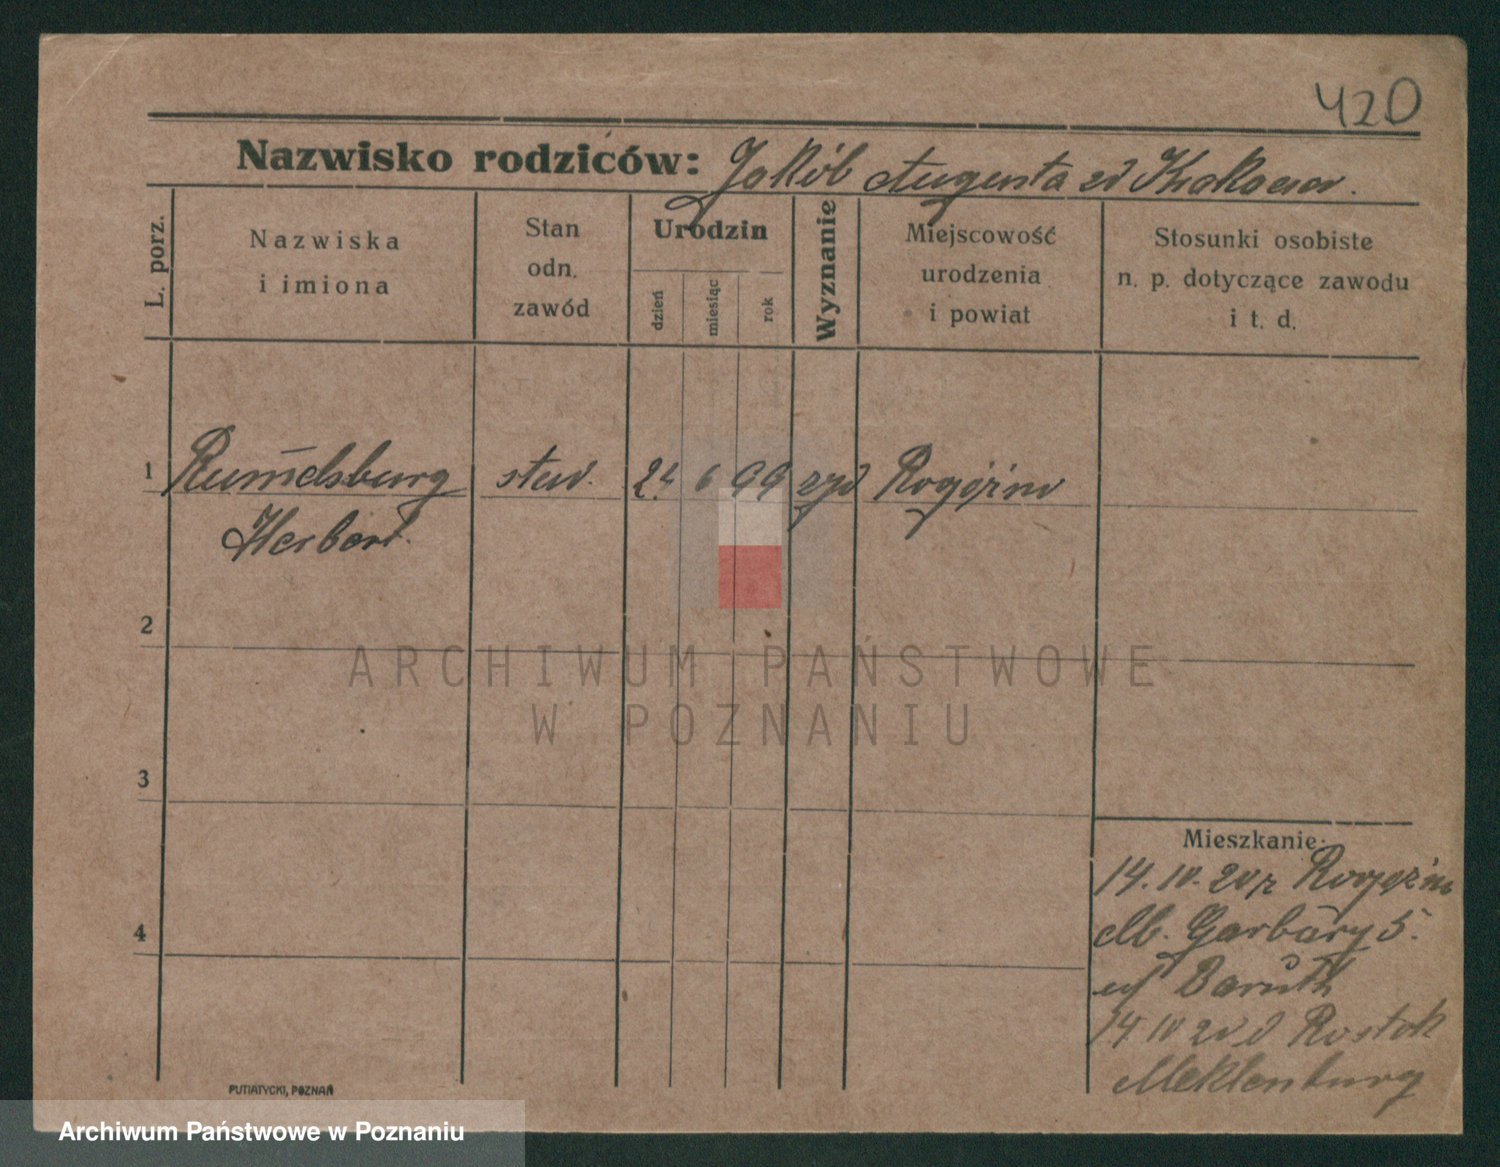 420
Nazwisko rodziców: Jakób Augusta zd Krakauer.
L. porz.
Nazwiska
i imiona
Stan
odn.
zawód
Urodzin
dzień
miesiąc
rok
Wyznanie
Miejscowość
urodzenia
i powiat
Stosunki osobiste
n. p. dotyczące zawodu
i t. d.
1 Rum̅elsburg stud. 24 6 99 żyd Rogoźno
Herbert.
2
ARCHIWUM PAŃSTWOWE
W POZNANIU
3
Mieszkanie:
14. IV. 20 z Rogoźna
Garbary 5.
Baruch
4
14 IV 20 d Rostok
Meklenburg
PUTIATYCKI, POZNAŃ
Archiwum Państwowe w Poznaniu